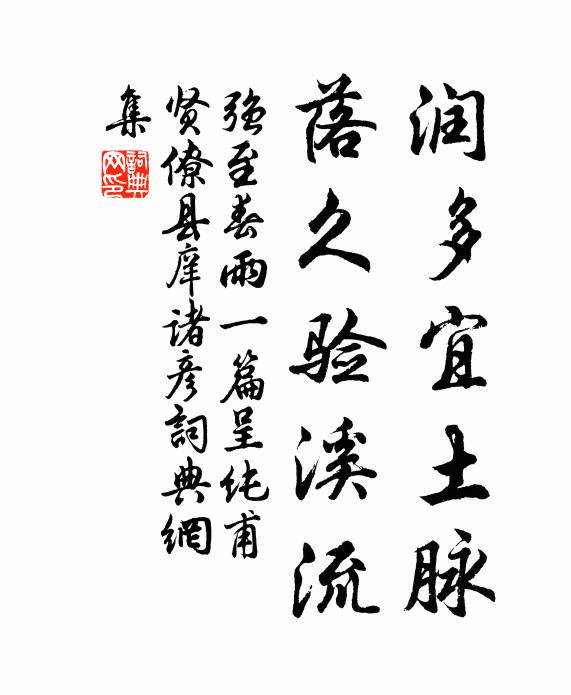 润多宜土脉
落久验溪流
强至春雨一篇呈纯甫
贤僚县庠诸彦詞典網
集
詞典网印